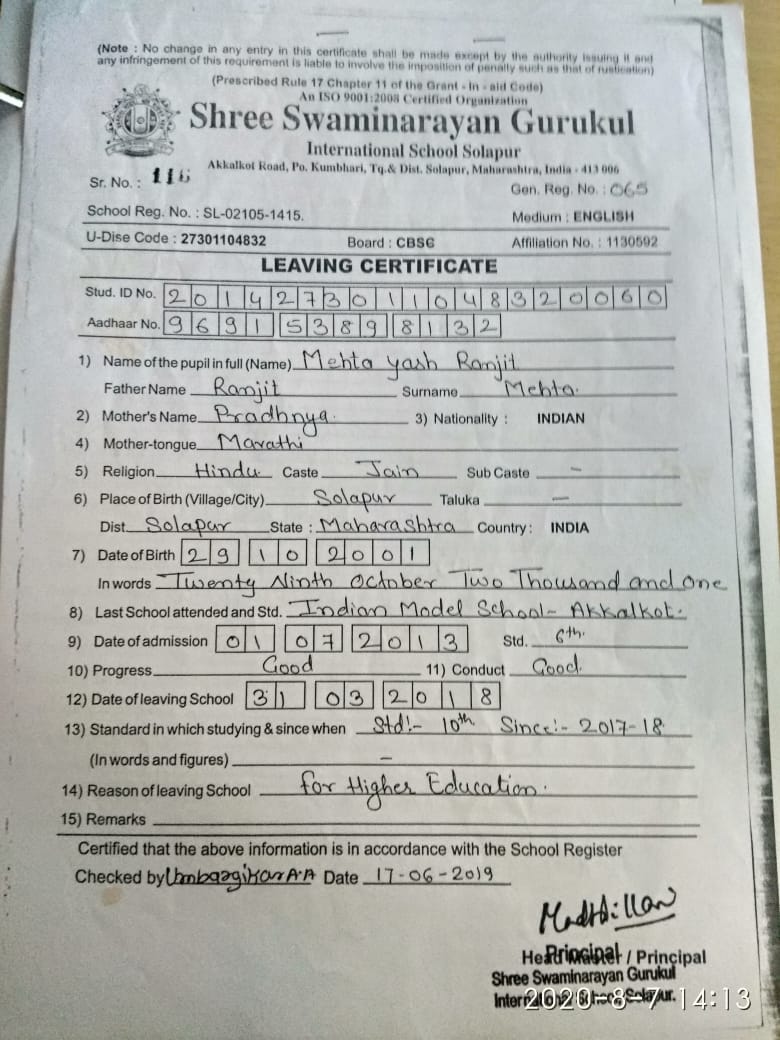 (Note : No change in any entry in this certificate shall be made except by the authority issuing it and
any infringement of this requirement is liable to involve the imposition of penalty such as that of rustication)
(Prescribed Rule 17 Chapter 11 of the Grant - In - aid Code)
An ISO 9001:2008 Certified Organization
Shree Swaminarayan Gurukul
International School Solapur
Akkalkot Road, Po. Kumbhari, Tq.& Dist. Solapur, Maharashtra, India - 413 006
Sr. No. : 116 Gen. Reg. No. : 065
School Reg. No. : SL-02105-1415. Medium : ENGLISH
U-Dise Code : 27301104832 Board : CBSC Affiliation No. : 1130592
LEAVING CERTIFICATE
Stud. ID No. 2014273011048320060
Aadhaar No. 9691 5389 8132
1) Name of the pupil in full (Name) Mehta yash Ranjit
Father Name Ranjit Surname Mehta.
2) Mother's Name Pradhnya. 3) Nationality : INDIAN
4) Mother-tongue Marathi
5) Religion Hindu Caste Jain Sub Caste -
6) Place of Birth (Village/City) Solapur Taluka -
Dist. Solapur State : Maharashtra Country : INDIA
7) Date of Birth 29 10 2001
In words Twenty Ninth October Two Thousand and One
8) Last School attended and Std. Indian Model School - Akkalkot.
9) Date of admission 01 07 2013 Std. 6th.
10) Progress Good 11) Conduct Good.
12) Date of leaving School 31 03 2018
13) Standard in which studying & since when Std:- 10th Since:- 2017-18
(In words and figures) -
14) Reason of leaving School for Higher Education.
15) Remarks
Certified that the above information is in accordance with the School Register
Checked by A.A Date 17-06-2019
Principal / Principal
Shree Swaminarayan Gurukul
International School Solapur.
2020-8-7 14:13